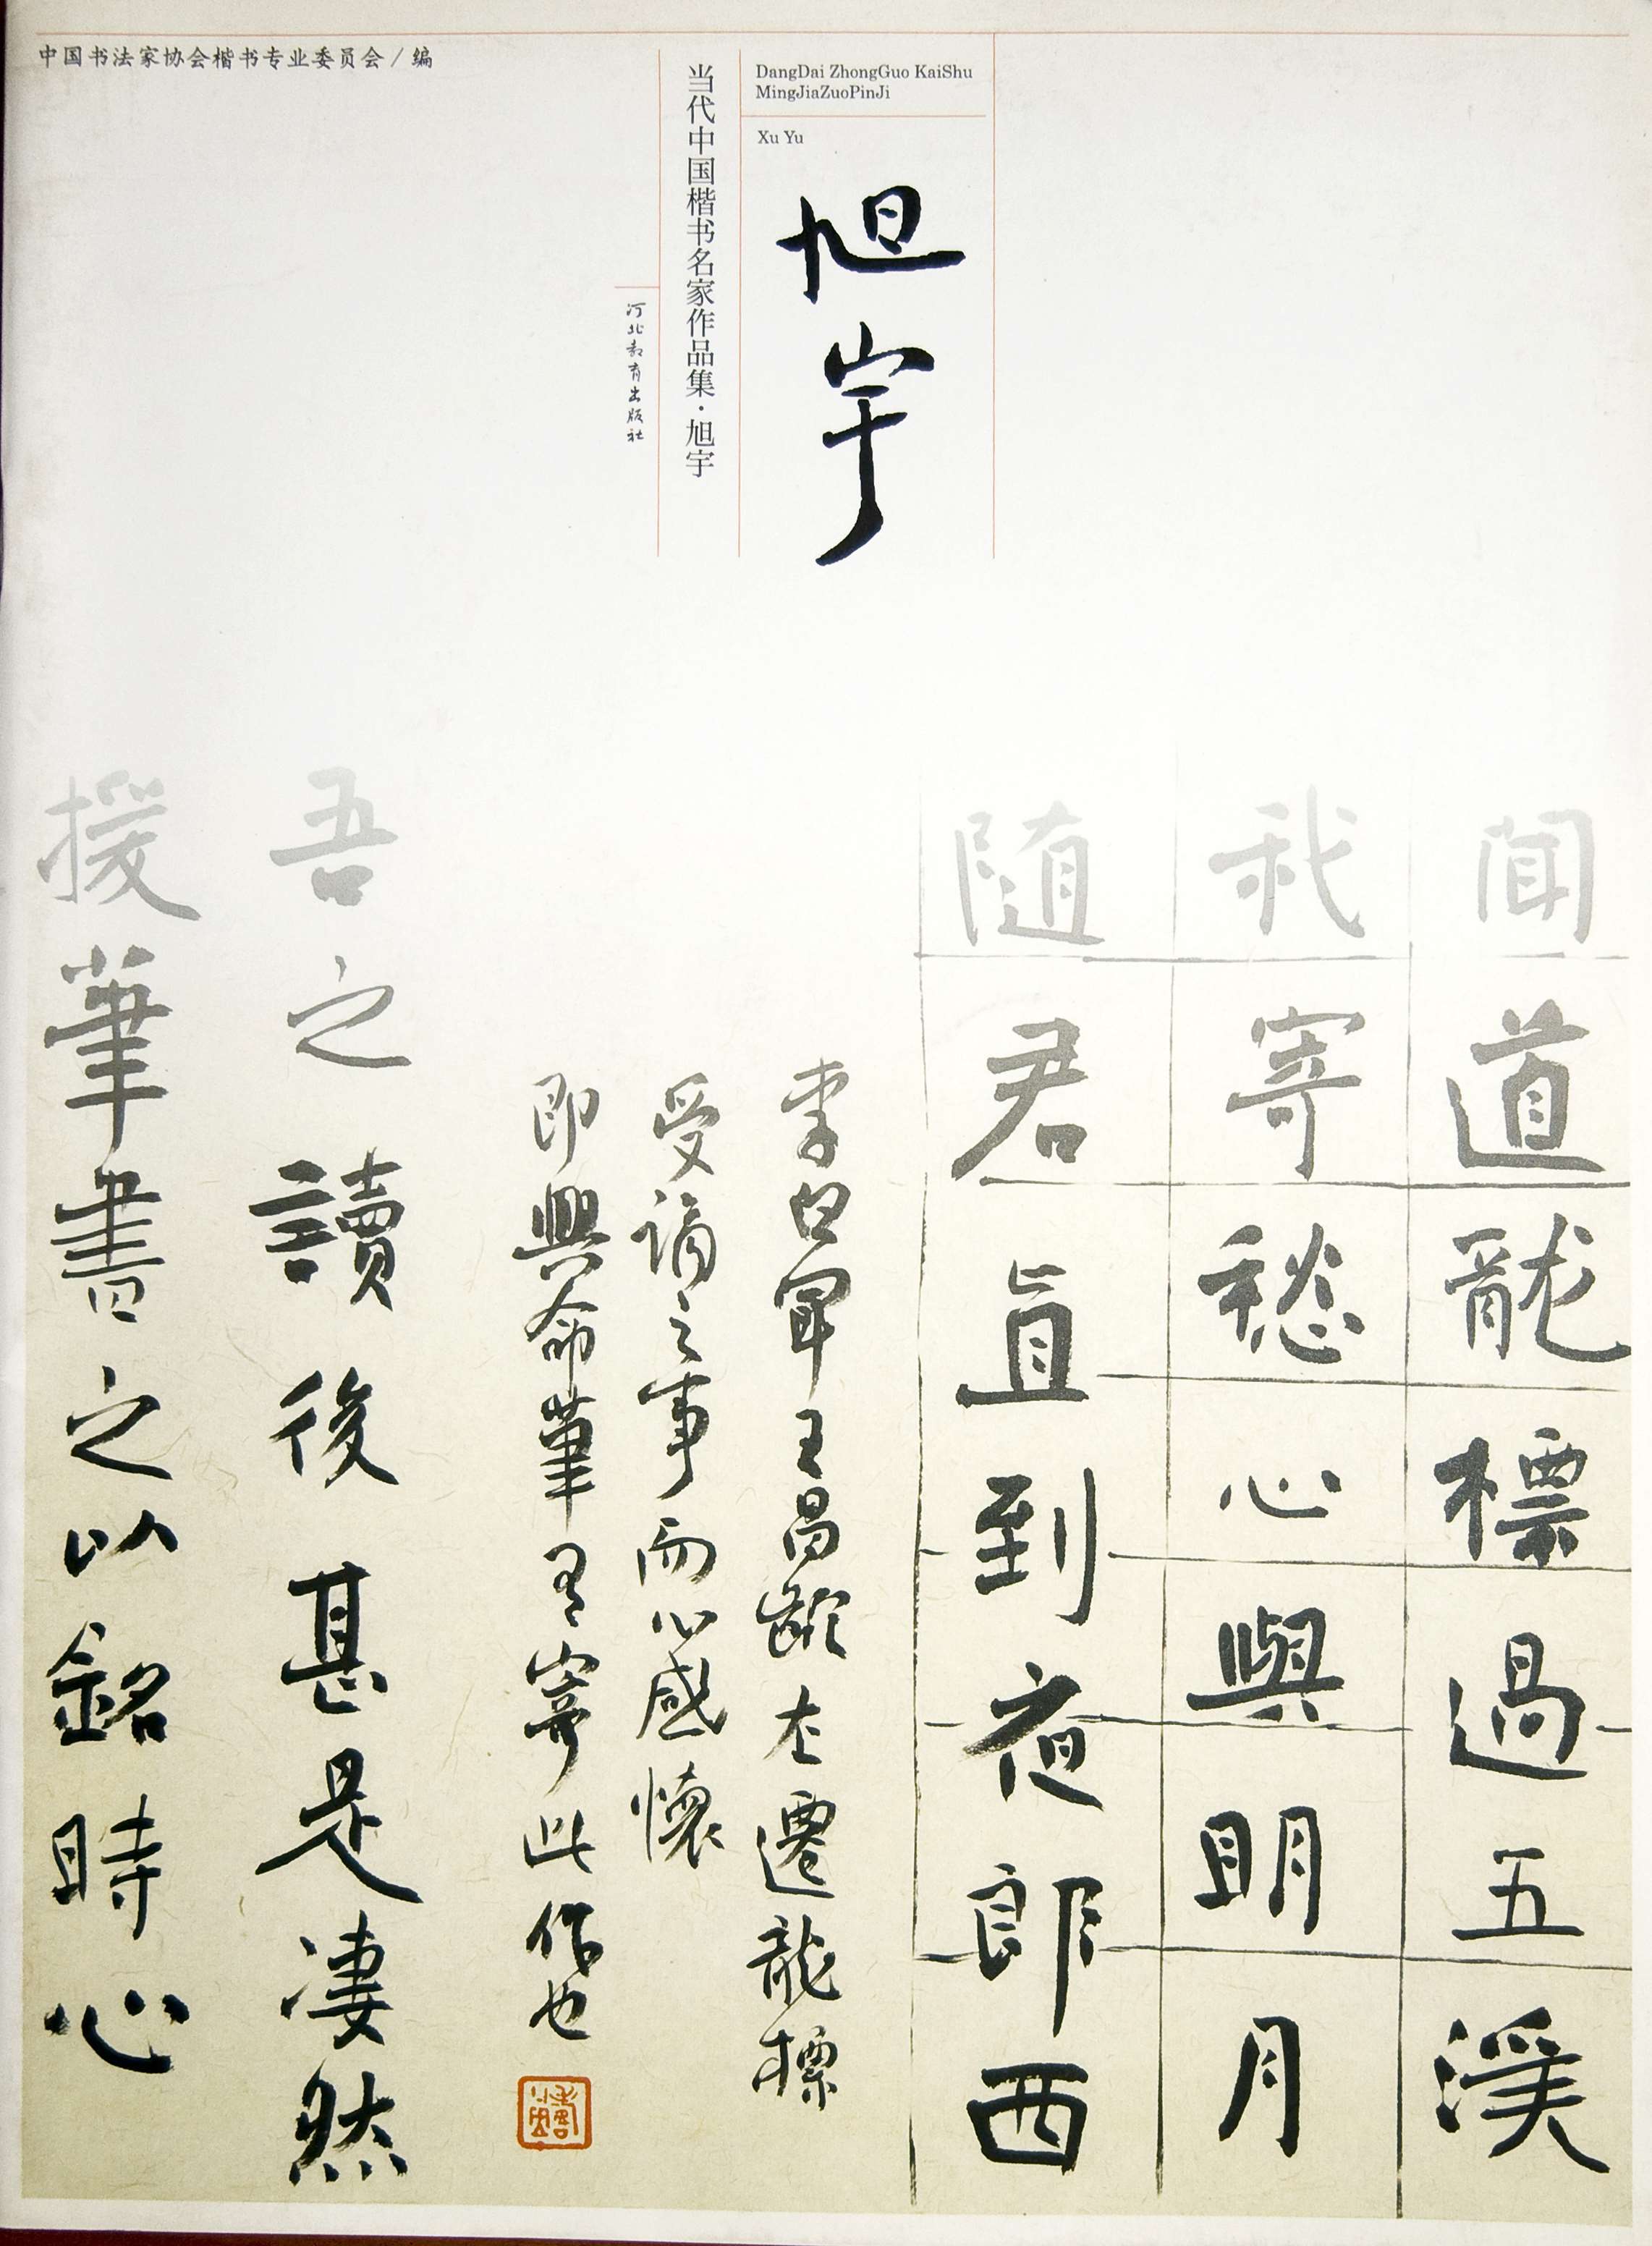 中国书法家协会楷书专业委员会/编
DangDai ZhongGuo KaiShu
MingJiaZuoPinJi
Xu Yu
旭宇
当代中国楷书名家作品集·旭宇
河北教育出版社
聞道龍標過五溪
我寄愁心與明月
随君直到夜郎西
李白聞王昌齡左遷龍標
受謫之事而心感懷
即興命筆者寄此作也
吾之讀後甚是凄然
援筆書之以銘時心